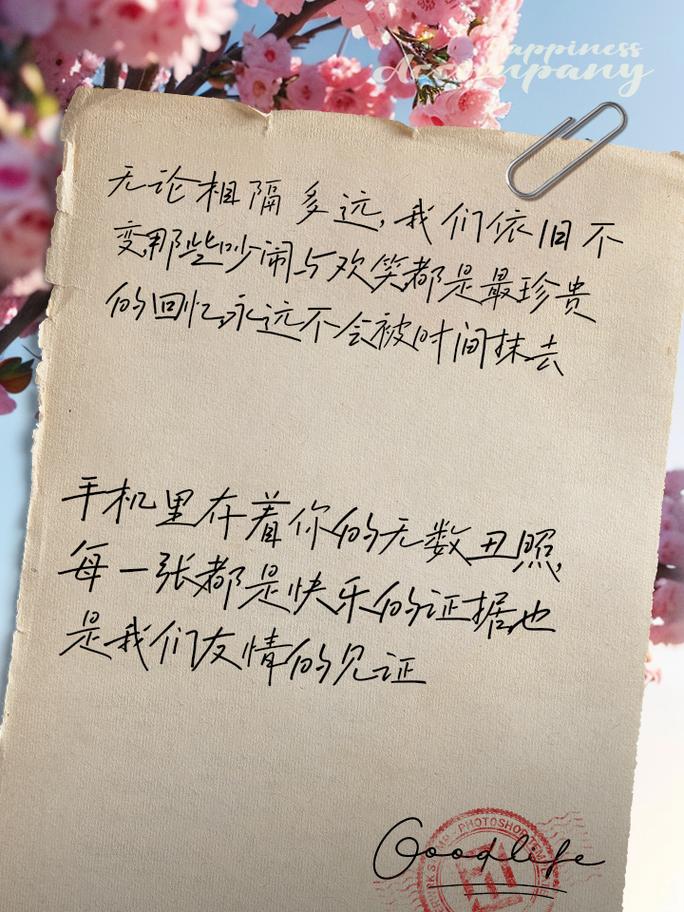 Happiness
Accompany
无论相隔多远,我们依旧不
变,那些吵闹与欢笑都是最珍贵
的回忆,永远不会被时间抹去
手机里存着你的无数丑照,
每一张都是快乐的证据也
是我们友情的见证
Goodlife
PHOTOSHOP